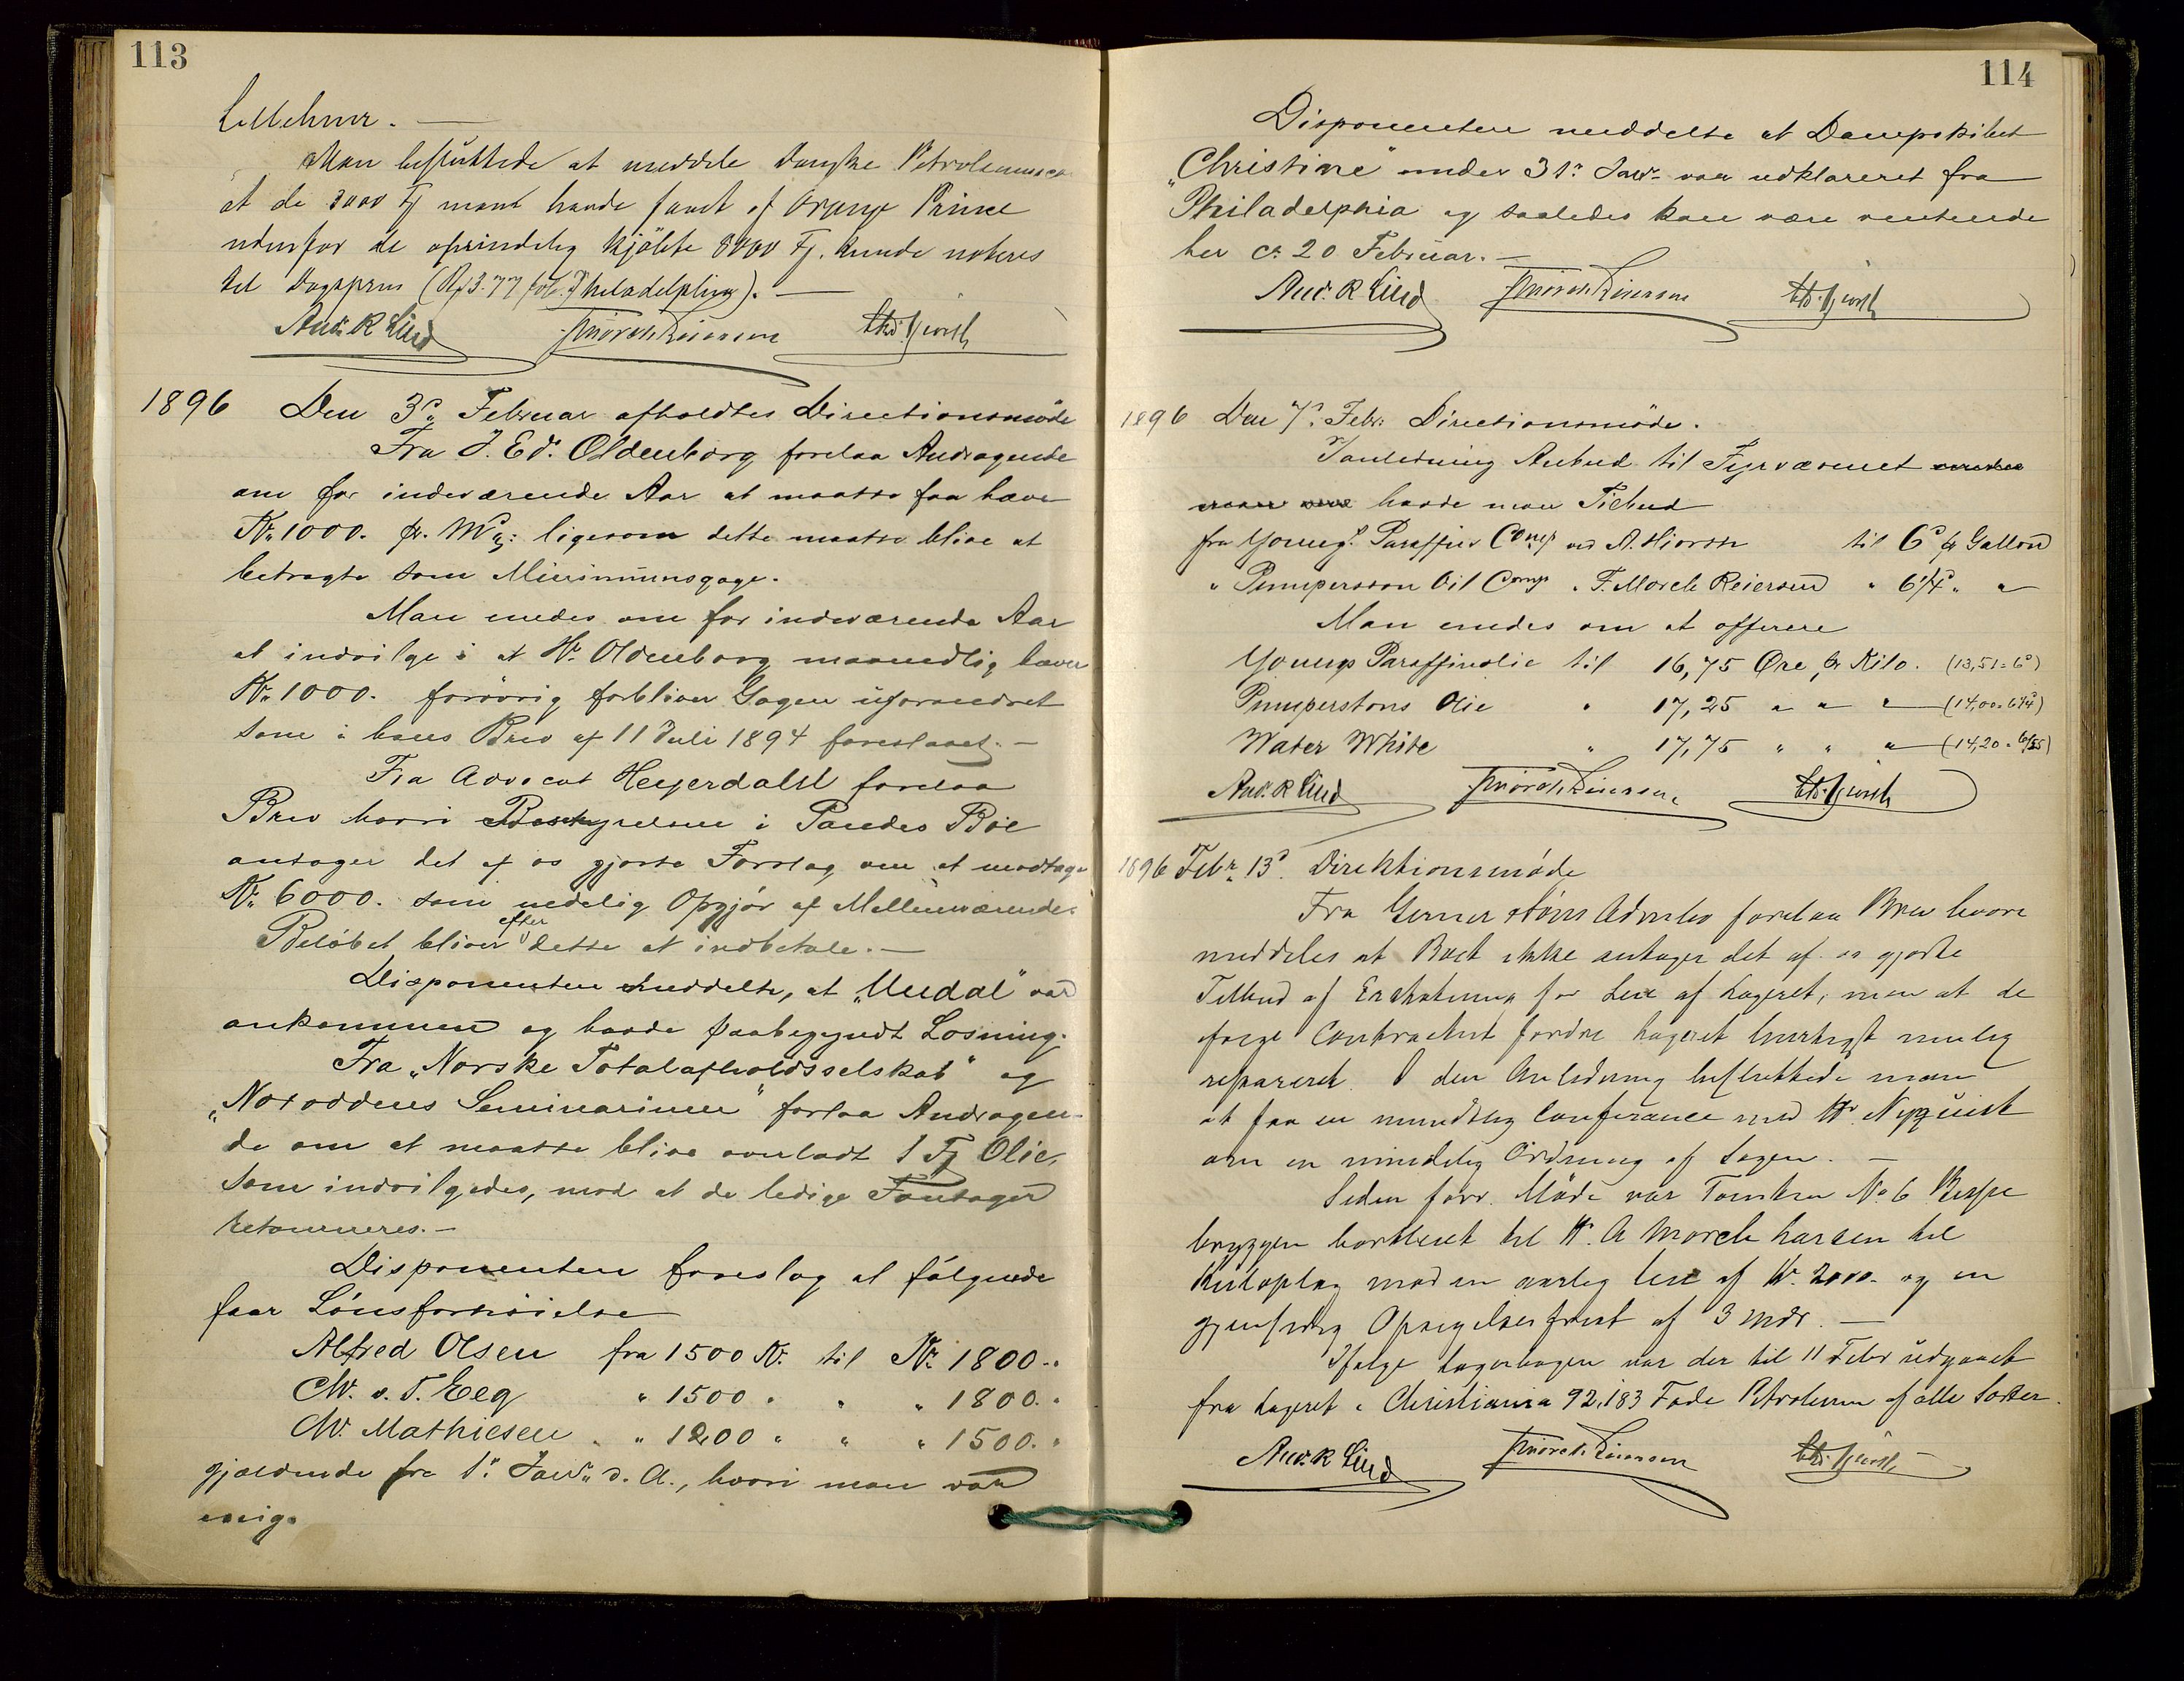 113
Man besluttede at meddele Danske Petroleumsco
at de 3000 Fj maatte havde faaet af Orange Prince
udenfor de oprindelig kjøbte 8000 Fj. kunde noteres
til Dagspris (Rf 3.77 fob. Philadelphia). —
And. R Lind F Mørch Reiersen Chr. Hjorth
1896 Den 3die Februar afholdtes Directionsmøde
Fra J. Ed. Oldenborg forelaa Andragende
om for indeværende Aar at maatte faa hæve
Kr. 1000. pr. Md: ligesom dette maatte blive at
betragte som Minimumsgage.
Man enedes om for indeværende Aar
at indvilge i at Hr. Oldenborg maanedlig hæver
Kr. 1000. forøvrig forbliver Gagen uforandret
som i hans Brev af 11 Juli 1894 foreslaaet. —
Fra Advocat Heyerdahl forelaa
Brev hvori Bestyrelsen i Bøe
antager det af os gjorte Forslag om at modtage
Kr. 6000. som endelig Opgjør af Mellemværendet
Beløbet bliver efter dette at indbetale. —
Disponenten meddelte, at „Uredal" var
ankommen og havde paabegyndt Losning.
Fra „Norske Totalafholdsselskab" og
„Notoddens Seminarium" forlaa Andragen-
de om at maatte blive overladt 1 Fj Olie,
som indvilgedes, mod at de ledige Fustager
retourneres. —
Disponenten foreslog at følgende
faar Lønsforhøielse
Alfred Olsen fra 1500 Kr. til Kr. 1800. "
Chr. v. T. Eeg " 1500 " " " 1800. "
Chr. Mathiesen " " 1200 " " " 1500. "
gjældende fra 1ste Janr. d. A., hvori man var
enig.
114
Disponenten meddelte at Dampskibet
„Christine" under 31te Janr. var udklareret fra
Philadelphia og saaledes kan være ventende
her ca. 20 Februar. —
And. R Lind F Mørch Reiersen Chr. Hjorth
1896 Den 7de Febr. Directionsmøde.
I anledning Anbud til Fyrvæsenet
havde man Tilbud
fra Youngs Paraffin Comp ved A. Hiorth til 6d pr Gallon
" Pumperston Oil Comp " F. Mørch Reiersen " 6 1/4d " "
Man enedes om at offerere
Youngs Paraffinolie til 16,75 Øre pr Kilo. (13,51 = 6d)
Pumperstons Olie " 17,25 " " " (14,00 = 6 1/4d)
Water White " 17,75 " " " (14,20 = )
And. R Lind F Mørch Reiersen Chr. Hjorth
1896 Febr. 13de Direktionsmøde
Fra forelaa Brev hvori
meddeles at ikke antager det af os gjorte
Tilbud af Erstatning for Leie af Lageret, men at de
ifølge Contracten fordre Lageret hurtigst mulig
repareret. I den Anledning besluttede man
at faa en mundtlig Conferance med Hr. Nyquist
om en mindelig Ordning af Sagen. —
Siden forr. Møde var Tomten No. 6 Bispe
bryggen bortleiet til Hr. A Mørch Larsen til
Kuloplag mod en aarlig Leie af Kr. 2000. og en
gjensidig Opsigelsesfrist af 3 Mdr. —
Ifølge Lagerbogen var der til 11 Febr udgaaet
fra Lageret i Christiania 92,183 Fade Petroleum af alle Sorter.
And. R Lind F Mørch Reiersen Chr. Hjorth